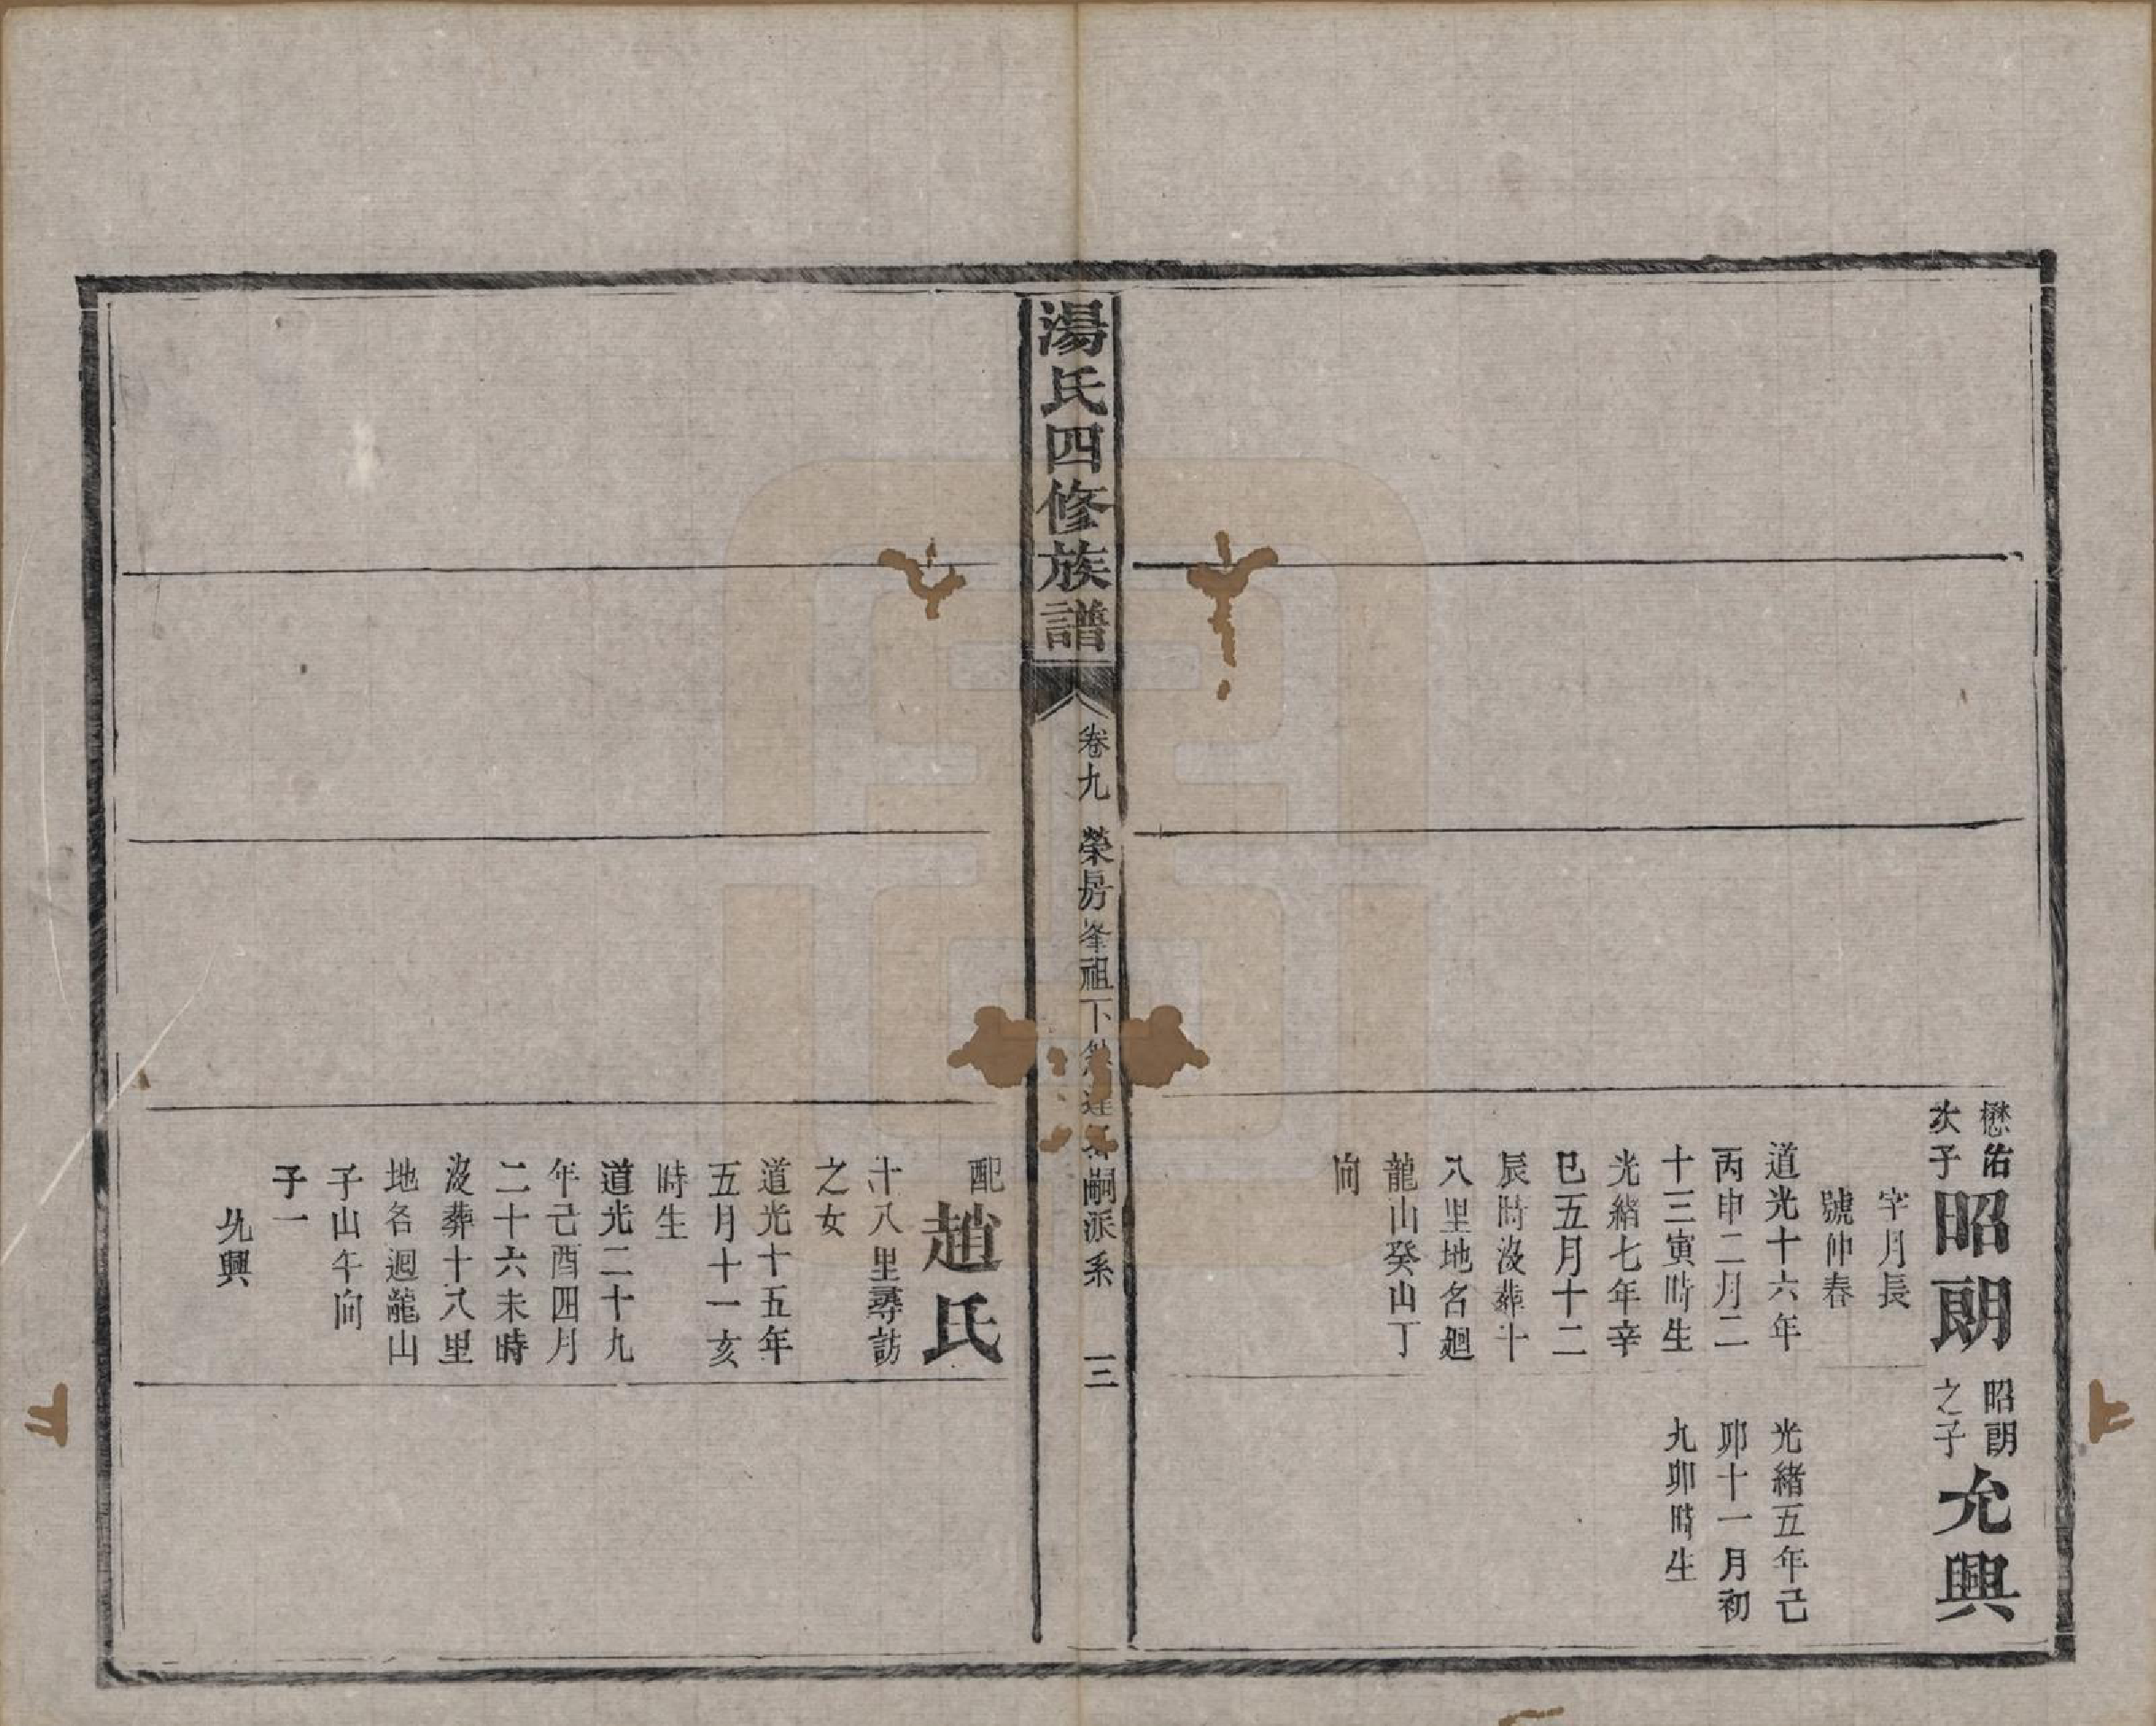 懋佑
次子
昭朗
字月長
號仲春
道光十六年
丙申二月二
十三寅時生
光緒七年辛
巳五月十二
辰時沒葬十
八里地名廻
龍山癸山丁
向
昭朗
之子
允興
光緒五年己
卯十一月初
九卯時生
湯氏四修族譜
卷九
榮房峯祖下
嗣派系
三
配
趙氏
十八里尋訪
之女
道光十五年
五月十一亥
時生
道光二十九
年己酉四月
二十六未時
沒葬十八里
地名迴龍山
子山午向
子一
允興